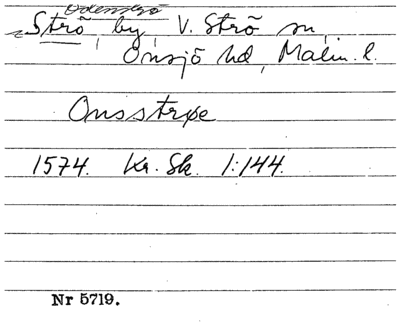 Strö, by, V. Strö sn,
Onsjö hd, Malm. l.
Onsstrøe
1574. Kr. Sk. 1:144.
Nr 5719.